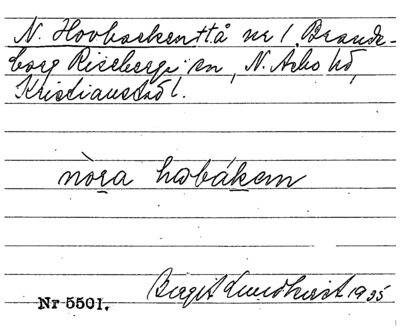 N. Hovbackenttå nr 1. Brande-
borg Riseberga sn, N. Åsbo hd,
Kristianstad l.
nòra hobákem
Birgit Lundkvist 1935
Nr 5501.